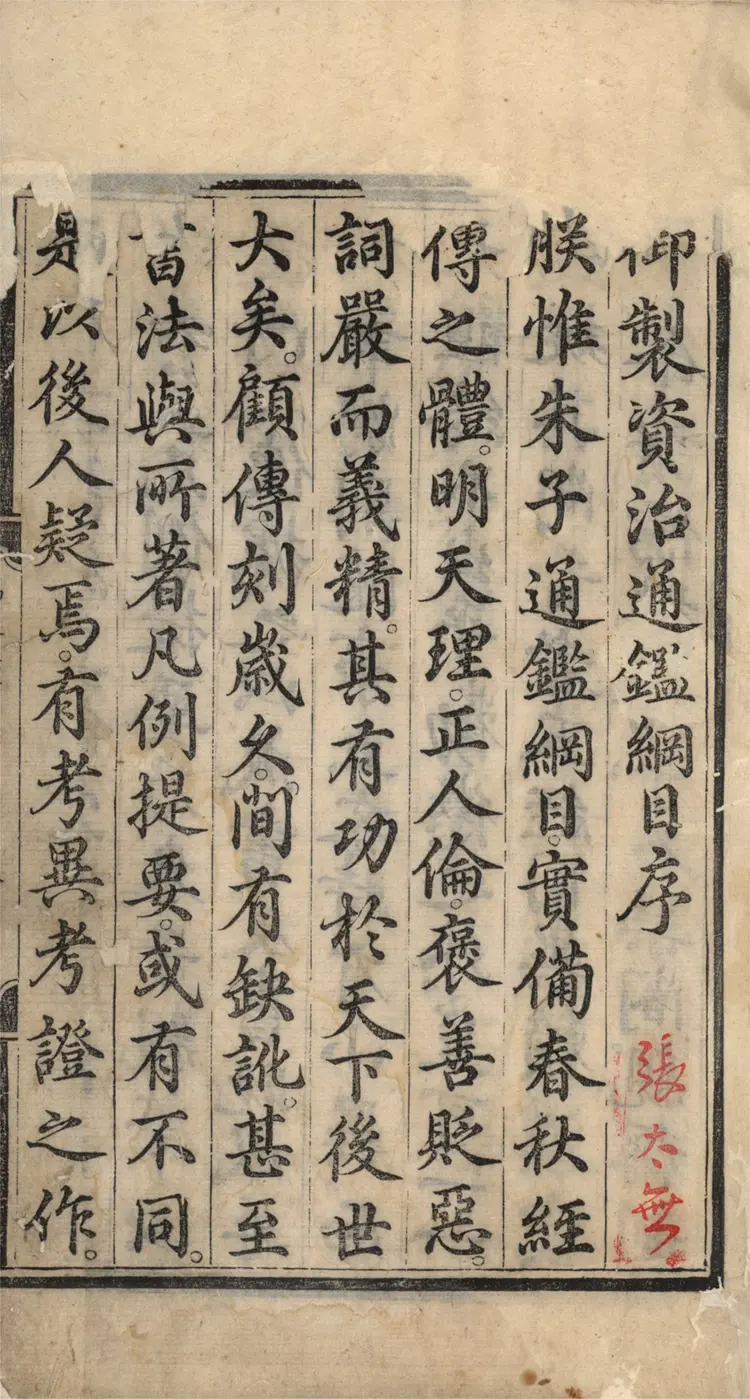 御製資治通鑑綱目序
張太無
朕惟朱子通鑑綱目。實備春秋經
傳之體。明天理。正人倫。褒善貶惡。
詞嚴而義精。其有功於天下後世
大矣。顧傳刻歲久。間有缺訛。甚至
書法與所著凡例提要。或有不同。
是以後人疑焉。有考異考證之作。